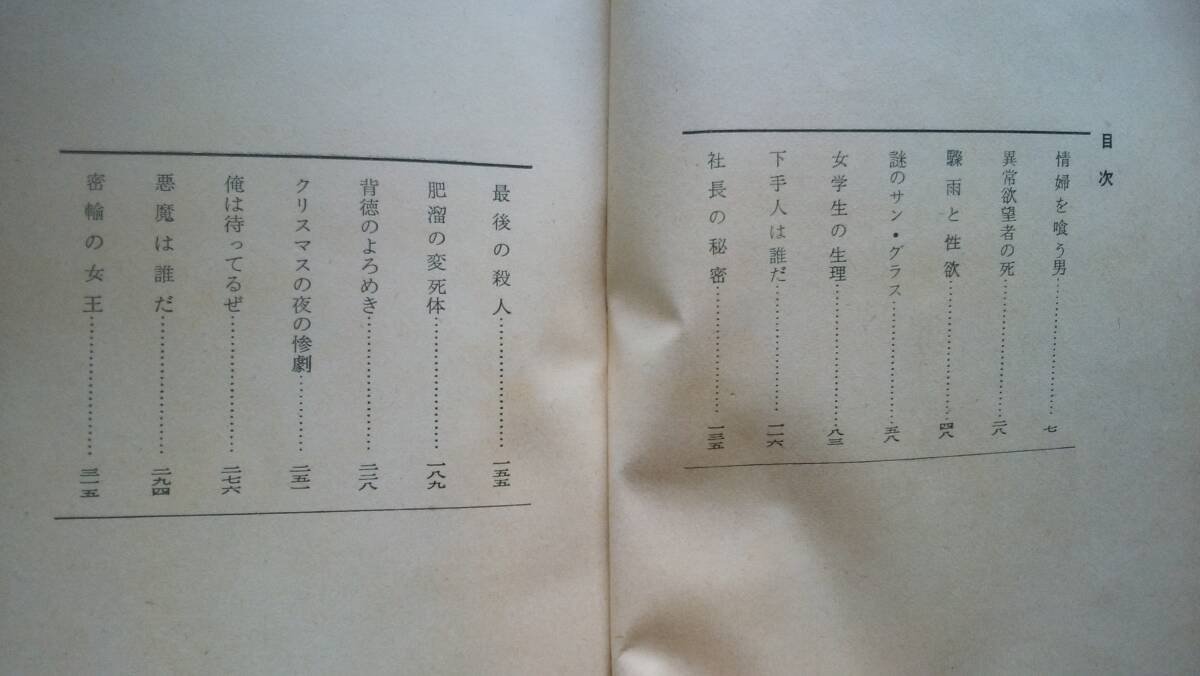 目次
情婦を喰う男……七
異常欲望者の死……二八
驟雨と性欲……四八
謎のサン・グラス……五八
女学生の生理……八三
下手人は誰だ……一一六
社長の秘密……一三五
最後の殺人……一五五
肥溜の変死体……一八九
背徳のよろめき……二二八
クリスマスの夜の惨劇……二五一
俺は待ってるぜ……二七六
悪魔は誰だ……二九四
密輸の女王……三一五